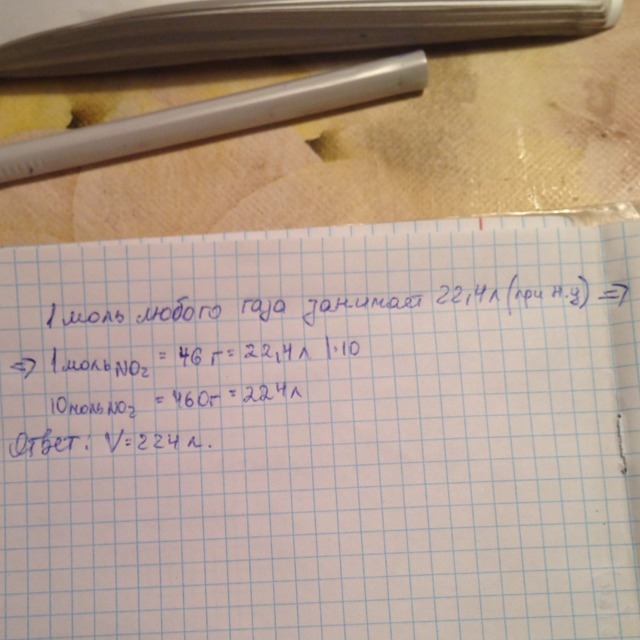 1 моль любого газа занимает 22,4 л (при н.у) =>
=> 1 моль NO₂ = 46 г = 22,4 л |·10
10 моль NO₂ = 460г = 224л
Ответ: V=224 л.